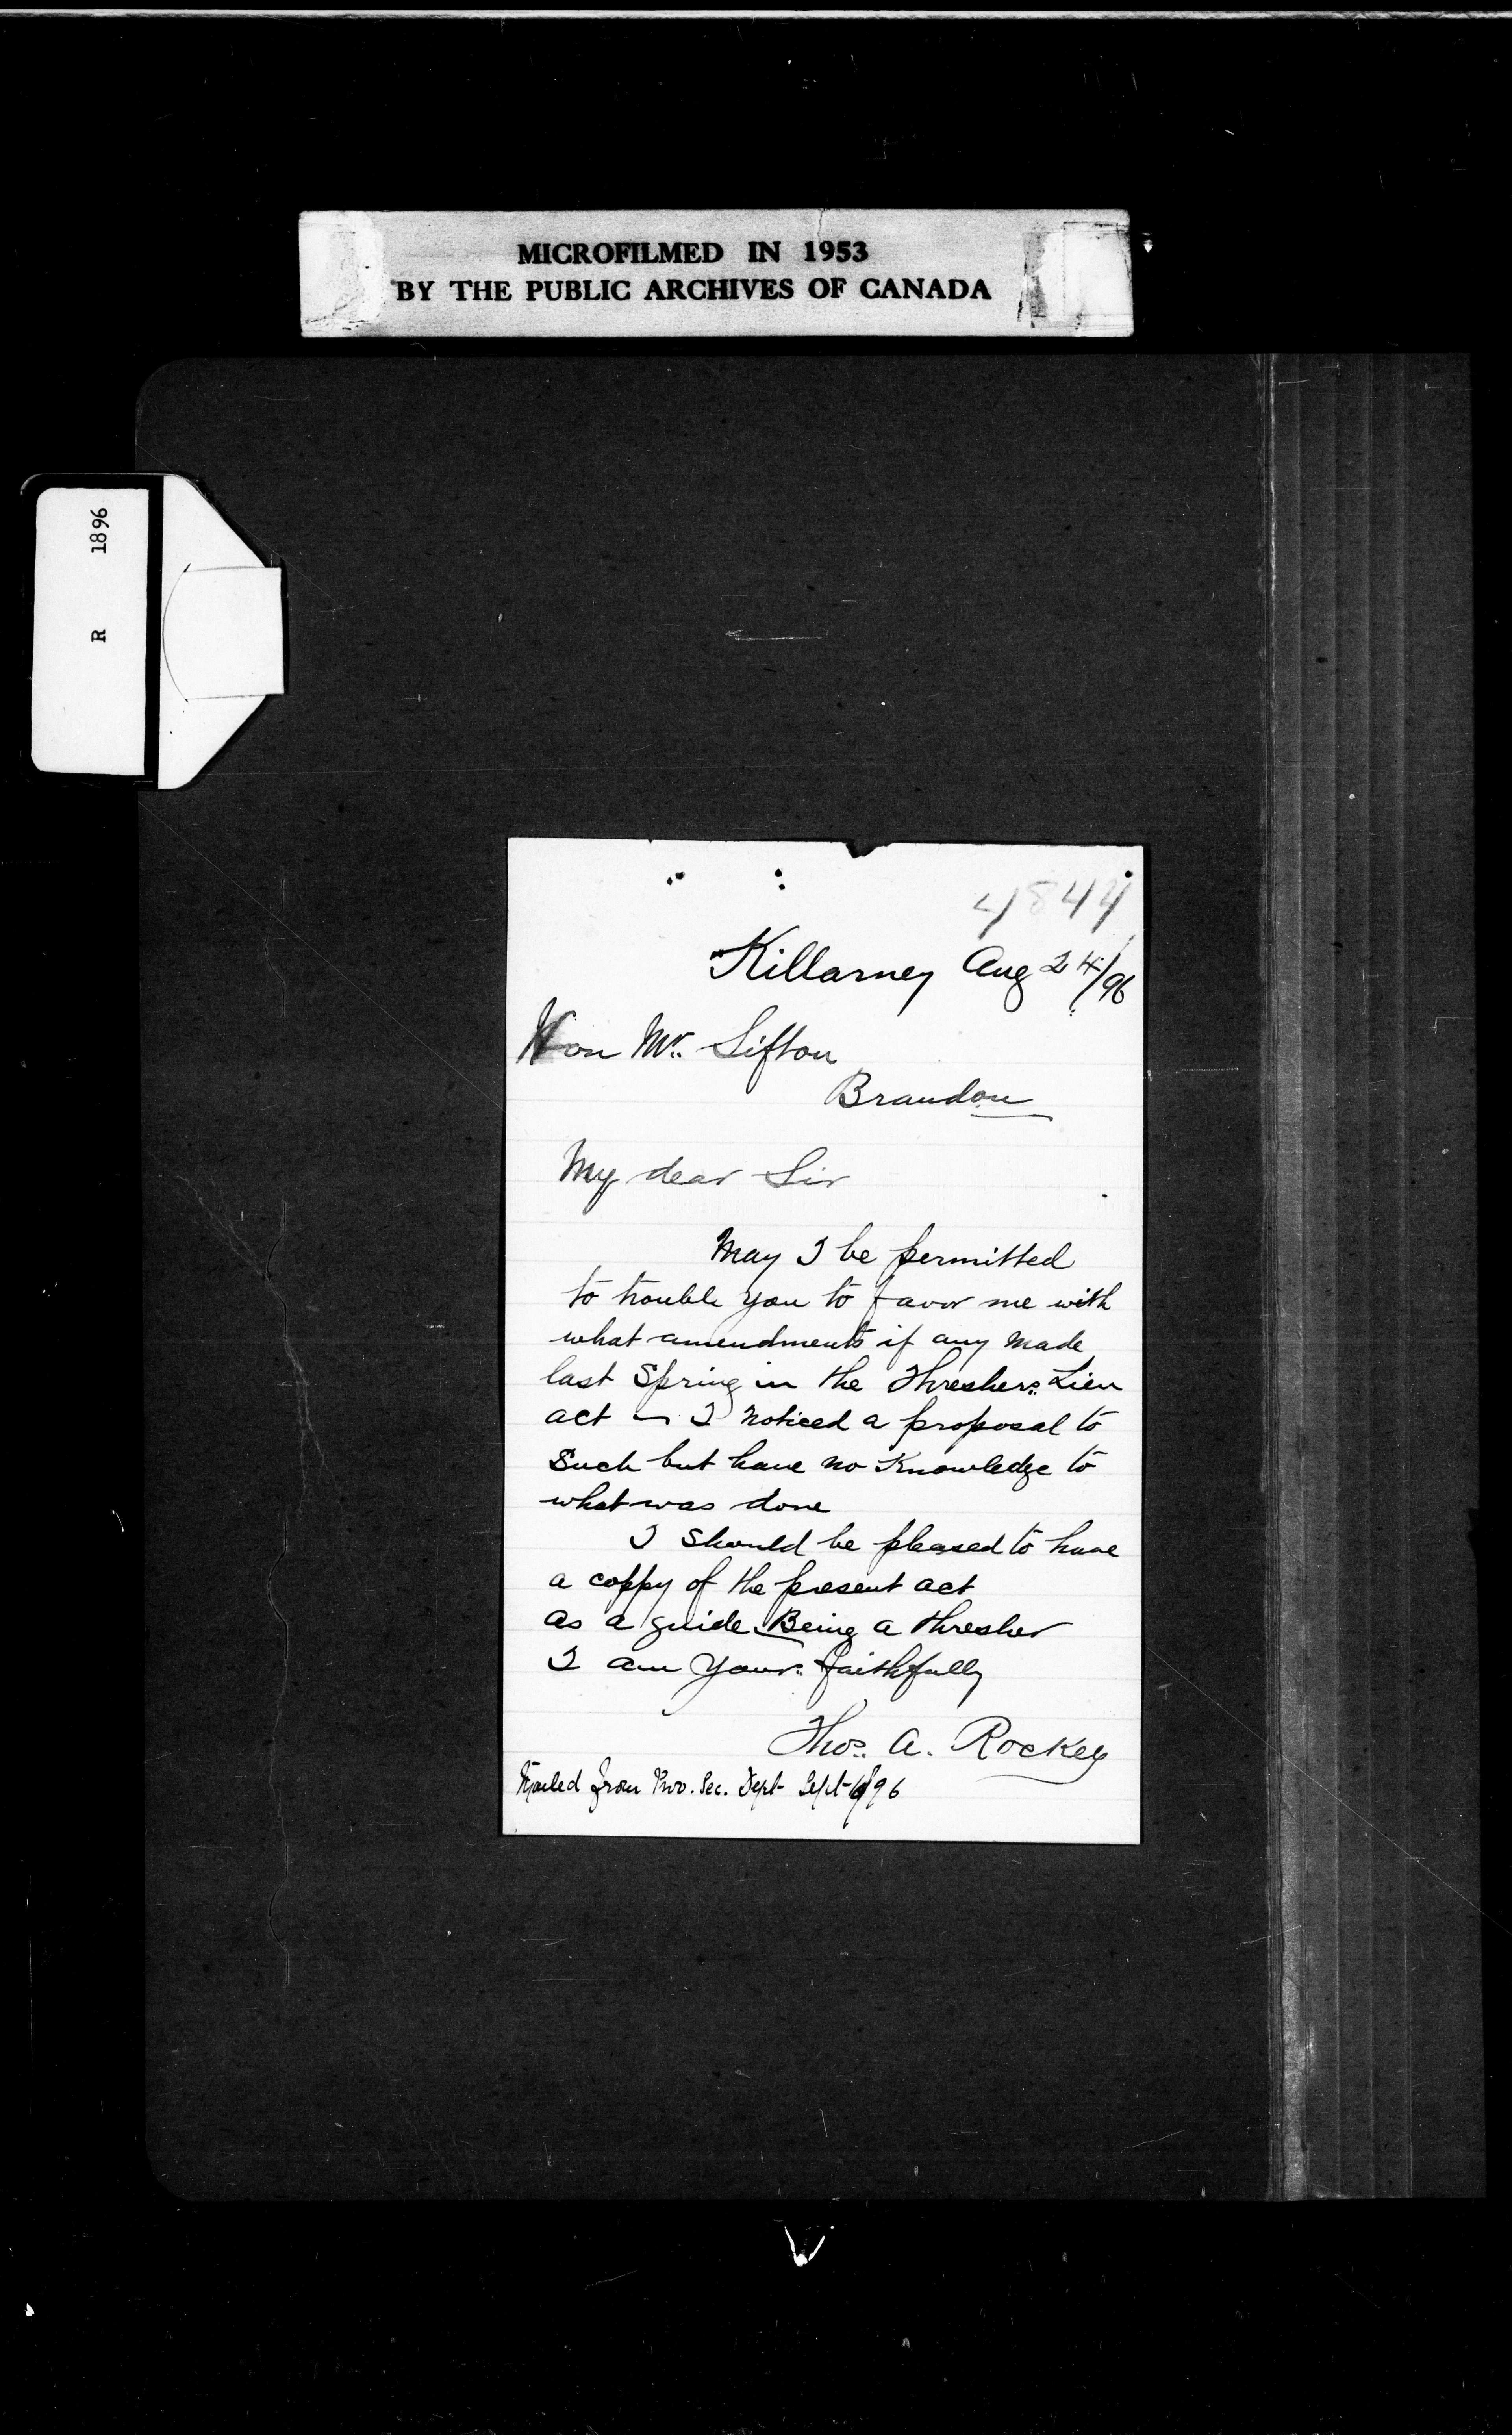 MICROFILMED IN 1953
BY THE PUBLIC ARCHIVES OF CANADA
R 1896
4844
Killarney Aug 24/96
Hon Mr. Sifton
Brandon
My dear Sir
May I be permitted
to trouble you to favor me with
what amendments if any made
last Spring in the Threshers Lien
act — I noticed a proposal to
Such but have no Knowledge to
what was done
I should be pleased to have
a coppy of the present act
as a guide Being a thresher
I am Yours faithfully
Thos. A. Rockey
Mailed from Prov. Sec. Dept Sept /96